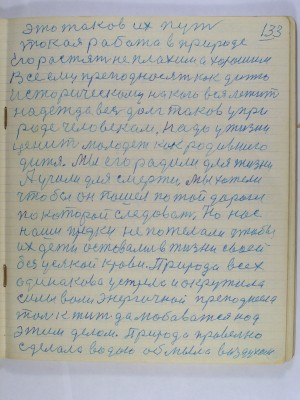 133
Это таков их путь
такая работа в природе
Его растят не плахим а хорошим
Все ему преподносят как дитю
историческому на кого вся летит
надежда вся долг таков у при
роде человекам. Надо у жизни
ценит молодеж как родившего
дитя. Мы его радили для жизни
А учили для смерти, мы хотели
чтобы он пошел по той дароги
по которой следовали. Но нас
наши предки не пожелали чтобы
их дети оставались в жизни своей
без всякой крови. Природа всех
одинакова устрела и окружила
сили воли энергичной преподнесла
этим делом. Природа правельно
сделала водою обмыла воздухом